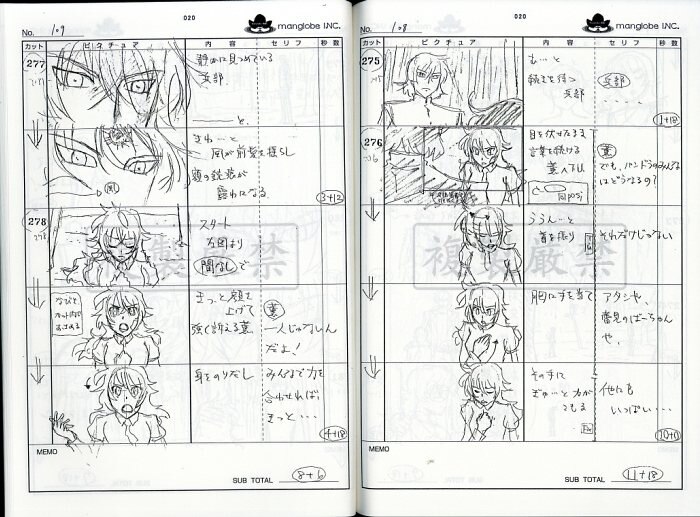 020
manglobe INC.
No. 109
カット ピクチュア 内容 セリフ 秒数
277
静かに見つめている
兵部
と、
風が前髪を揺らし
額の銃痕が
露わになる
風
3+12
278
スタート
左図より
間なしで
きっと顔を
上げて
強く訴える薫
薫
一人じゃないん
だよ!
身をのりだし
みんなで力を
合わせれば、
きっと・・・
4+18
MEMO
SUB TOTAL 8+6
020
manglobe INC.
No. 108
カット ピクチュア 内容 セリフ 秒数
275
続きを待つ
兵部
兵部
・・・・・
1+18
276
目を伏せたまま
言葉を続ける
薫へT.U
同ポジ
薫
でも、パンドラのみんな
はどうなるの?
ううん…と
首を振り
それだけじゃない
胸に手を当て
アタシや、
蕾見のばーちゃん
や、
その手に
ぎゅっと力が
こもる
他にも
いっぱい・・・
10+0
MEMO
SUB TOTAL 11+18
複製厳禁
複製厳禁